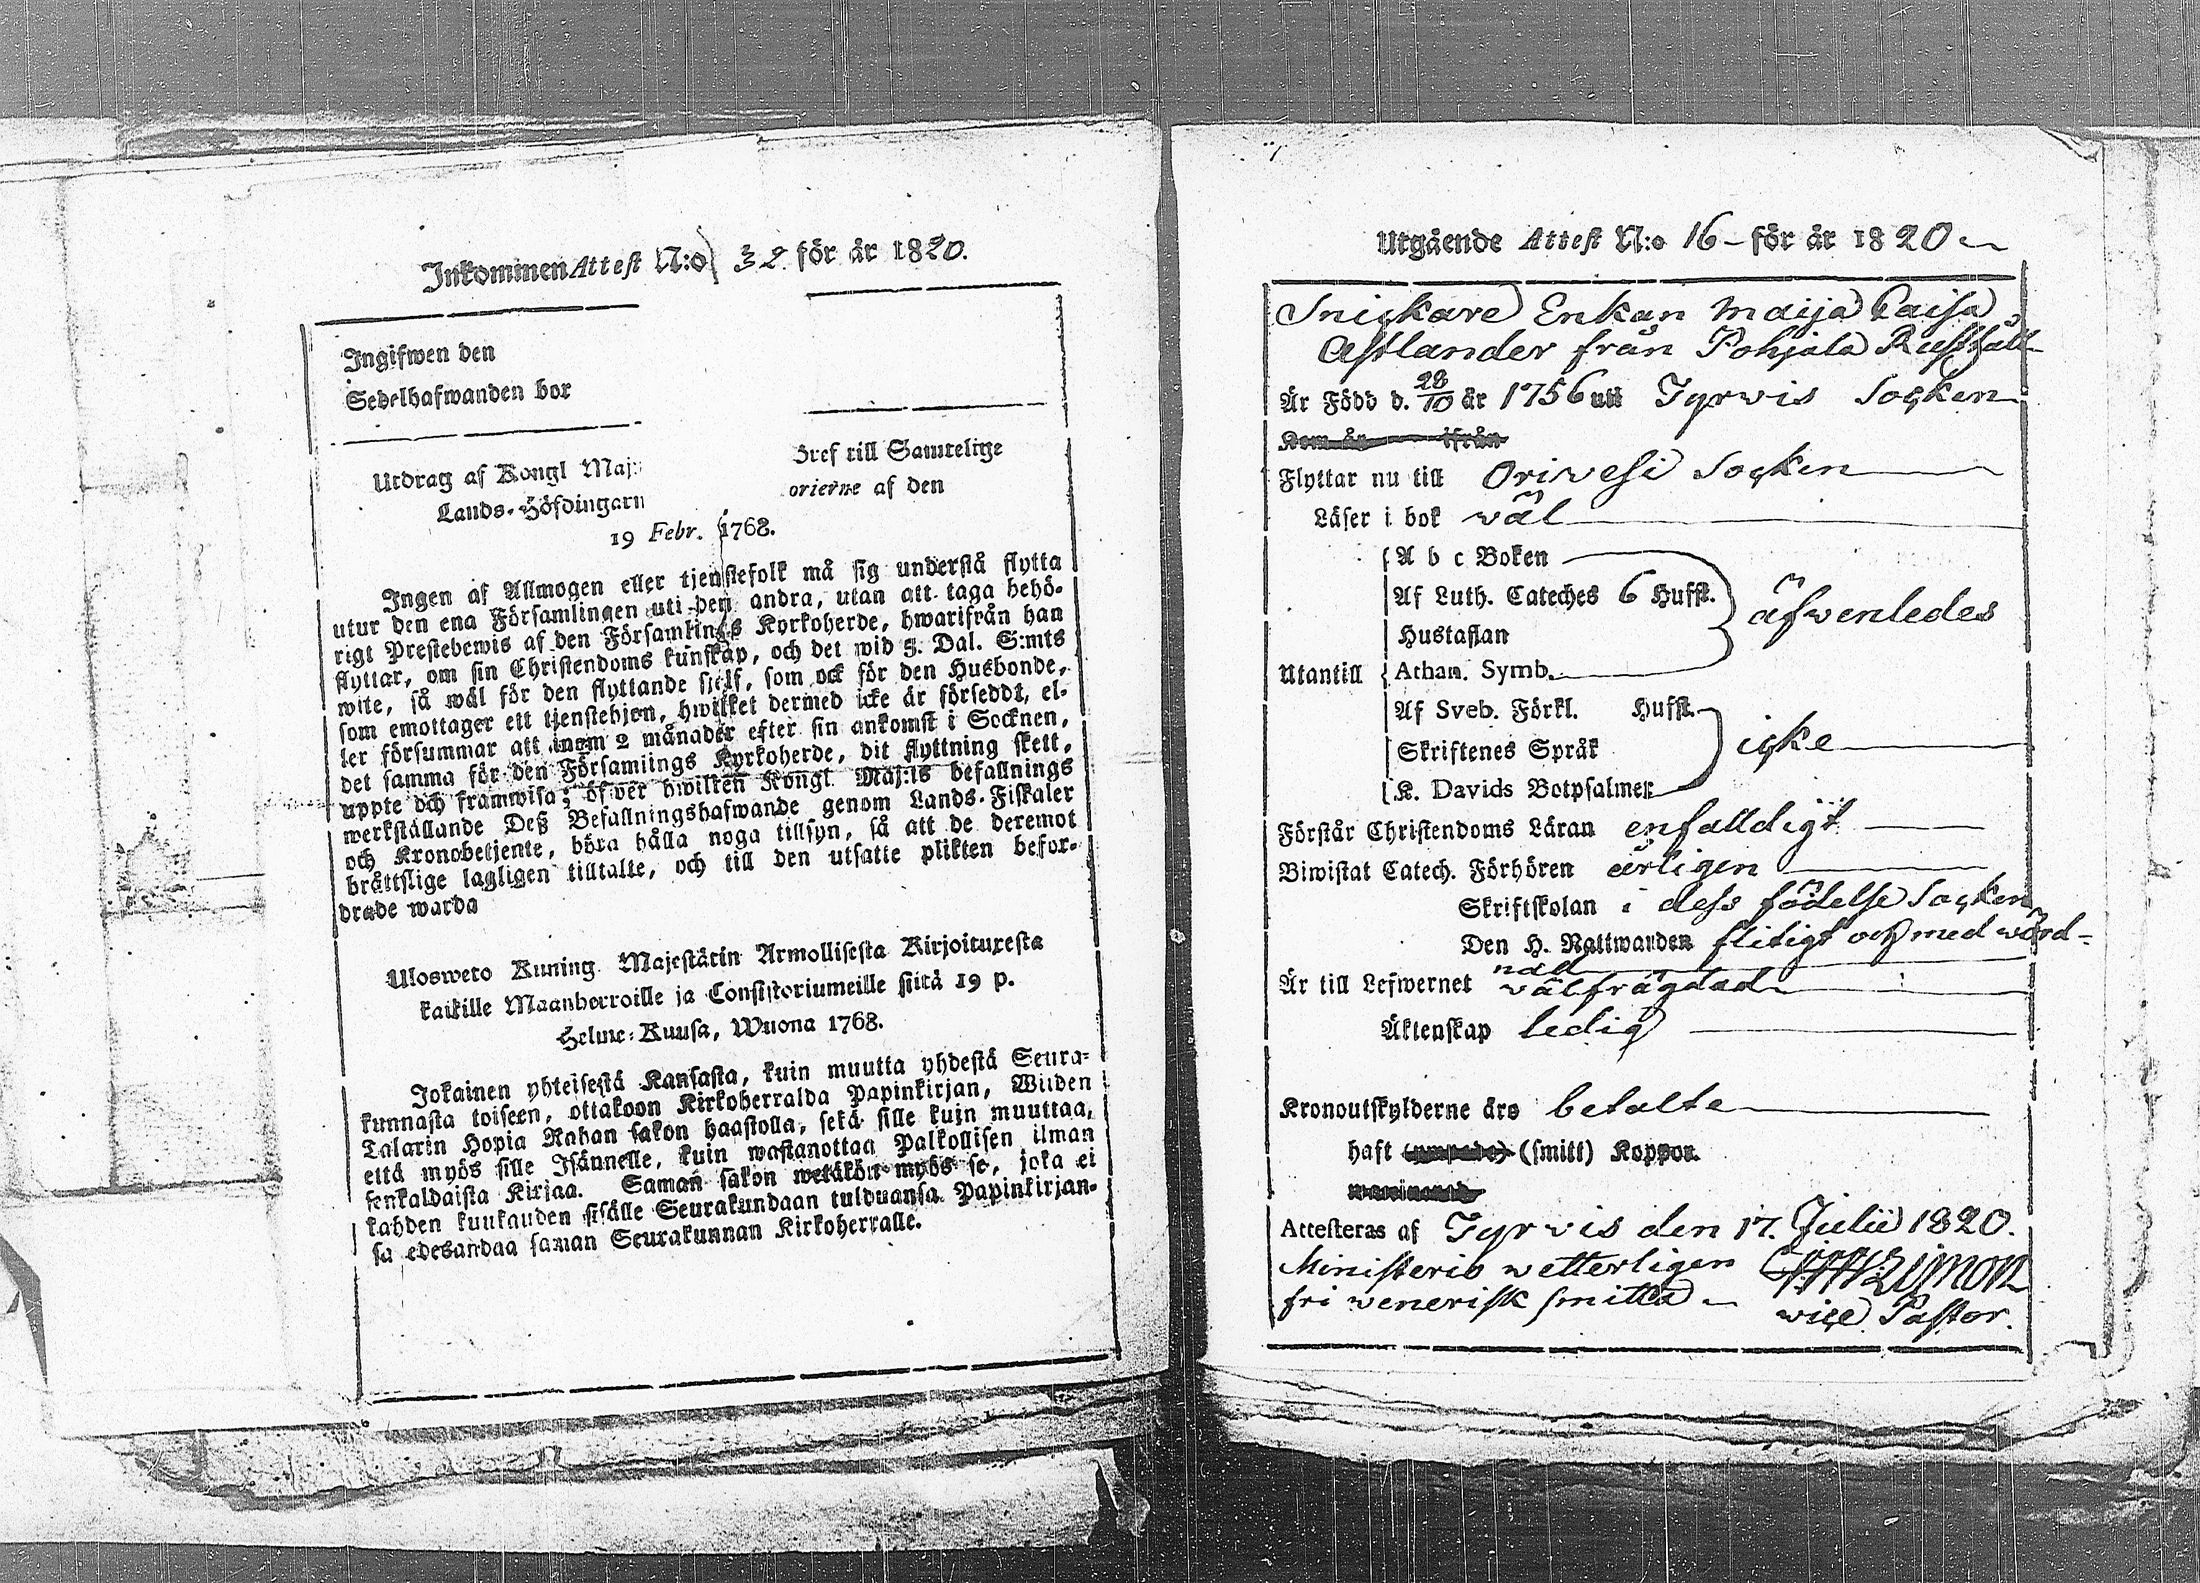 Inkommen Attest N:o 32. för år 1820.
Ingifwen den
Sedelhafwanden bor
Utdrag af Kongl Maj:
Bref till Samtelige
Lands-Höfdingarn
orierne af den
19 Febr. 1768.
Ingen af Allmogen eller tjenstefolk må sig understå flytta
utur den ena Församlingen uti den andra, utan att taga behö-
rigt Prestebewis af den Församlings Kyrkoherde, hwarifrån han
flyttar, om sin Christendoms kunskap, och det wid 3. Dal. S:mts
wite, så wäl för den flyttande sjelf, som ock för den Husbonde,
som emottager ett tjenstehjon, hwilket dermed icke är förseddt, el-
ler försummar att inom 2 månader efter sin ankomst i Socknen,
det samma för den Församlings Kyrkoherde, dit flyttning skett,
uppte och framwisa; öfwer hwilken Kongl Maj:ts befallnings
werkställande Deß Befallningshafwande genom Lands-Fiskaler
och Kronobetjente, böra hålla noga tillsyn, så att de deremot
bråttslige lagligen tilltalte, och till den utsatte plikten befor-
drade warda
Ulosweto Kuning. Majestätin Armollisesta Kirjoituxesta
kaikille Maanherroille ja Consistoriumeille siitä 19 p.
Helme-Kuusa, Wuona 1768.
Jokainen yhteisestä Kansasta, kuin muutta yhdestä Seura-
kunnasta toiseen, ottakoon Kirkoherralda Papinkirjan, Wiiden
Talarin Hopia Rahan sakon haastolla, sekä sille kuin muuttaa,
että myös sille Isännelle, kuin wastanottaa Palkollisen ilman
senkaldaista Kirjaa. Saman sakon wetäkön myös se, joka ei
kahden kuukauden sisälle Seurakundaan tulduansa Papinkirjan-
sa edesandaa saman Seurakunnan Kirkoherralle.
Utgående Attest N:o 16 - för år 1820
Snickare Enkan Maija Caisa
Astlander från Pohjala Rusthåll
Är Född d. 28/10 år 1756 utt Tyrwis Socken
Kom år ifrån
Flyttar nu till Orivesi Socken
Läser i bok wäl
A b c Boken
Af Luth. Cateches 6 Hufst.
äfwenledes
Hustaflan
Utantill Athan. Symb.
Af Sveb. Förkl. Hufst.
Skriftenes Språk icke
K. Davids Botpsalmer
Förstår Christendoms Läran enfalldigt
Biwistat Catech. Förhören årligen
Skriftskolan i dess födelse Socken
Den H. Nattwarden flitigt och med wörd-
nad
Är till Lefwernet wälfrägdad
Äktenskap ledig
Kronoutskylderne äro betalte
haft (ympade) (smitt) Koppor.
waccinerad
Attesteras af Tyrwis den 17. Julii 1820.
Ministerio wetterligen
fri wenerisk smitta
wice Pastor.